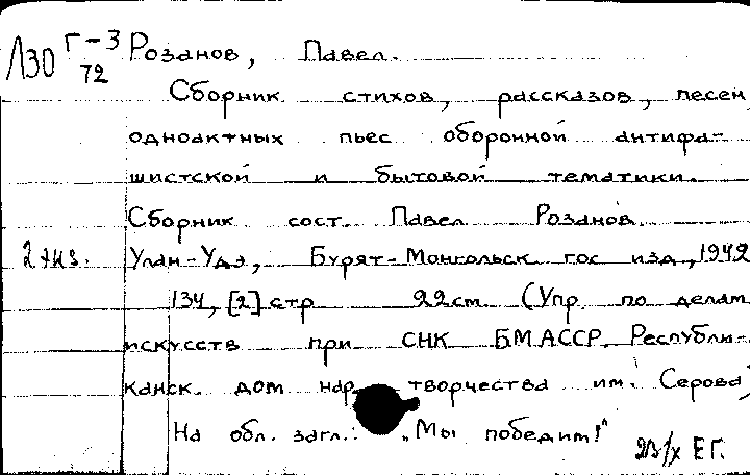 Л30 Г-3 Розанов, Павел.
72
Сборник стихов, рассказов, песен,
одноактных пьес оборонной антифа-
шистской и бытовой тематики.
Сборник сост. Павел Розанов.
2 экз. Улан-Удэ, Бурят-Монгольск. гос. изд., 1942
134, [2] стр 22 см. (Упр. по делам
искусств при СНК БМАССР. Республи-
канск. дом нар. творчества им. Серова)
На обл. загл.: „Мы победим!"
ЕГ.